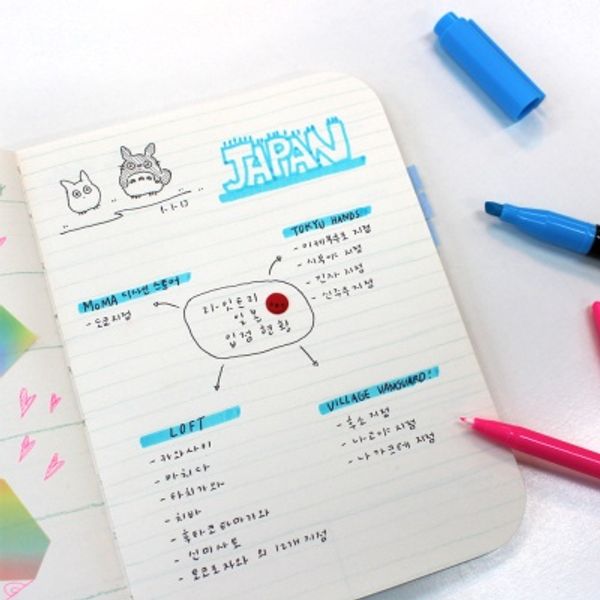 JAPAN
1.7.13
TOKYU HANDS
- 이케부쿠로 지점
- 시부야 지점
- 긴자 지점
- 신주쿠 지점
MOMA 디자인 스토어
- 도쿄지점
라-잇트리
일본
입점 현황
LOFT
- 카와사키
- 마치다
- 타치가와
- 치바
- 후타코타마가와
- 신미사토
- 토코로자와 외 12개 지점
VILLAGE VANGUARD!
- 호소 지점
- 나고야 지점
- 나가쿠테 지점